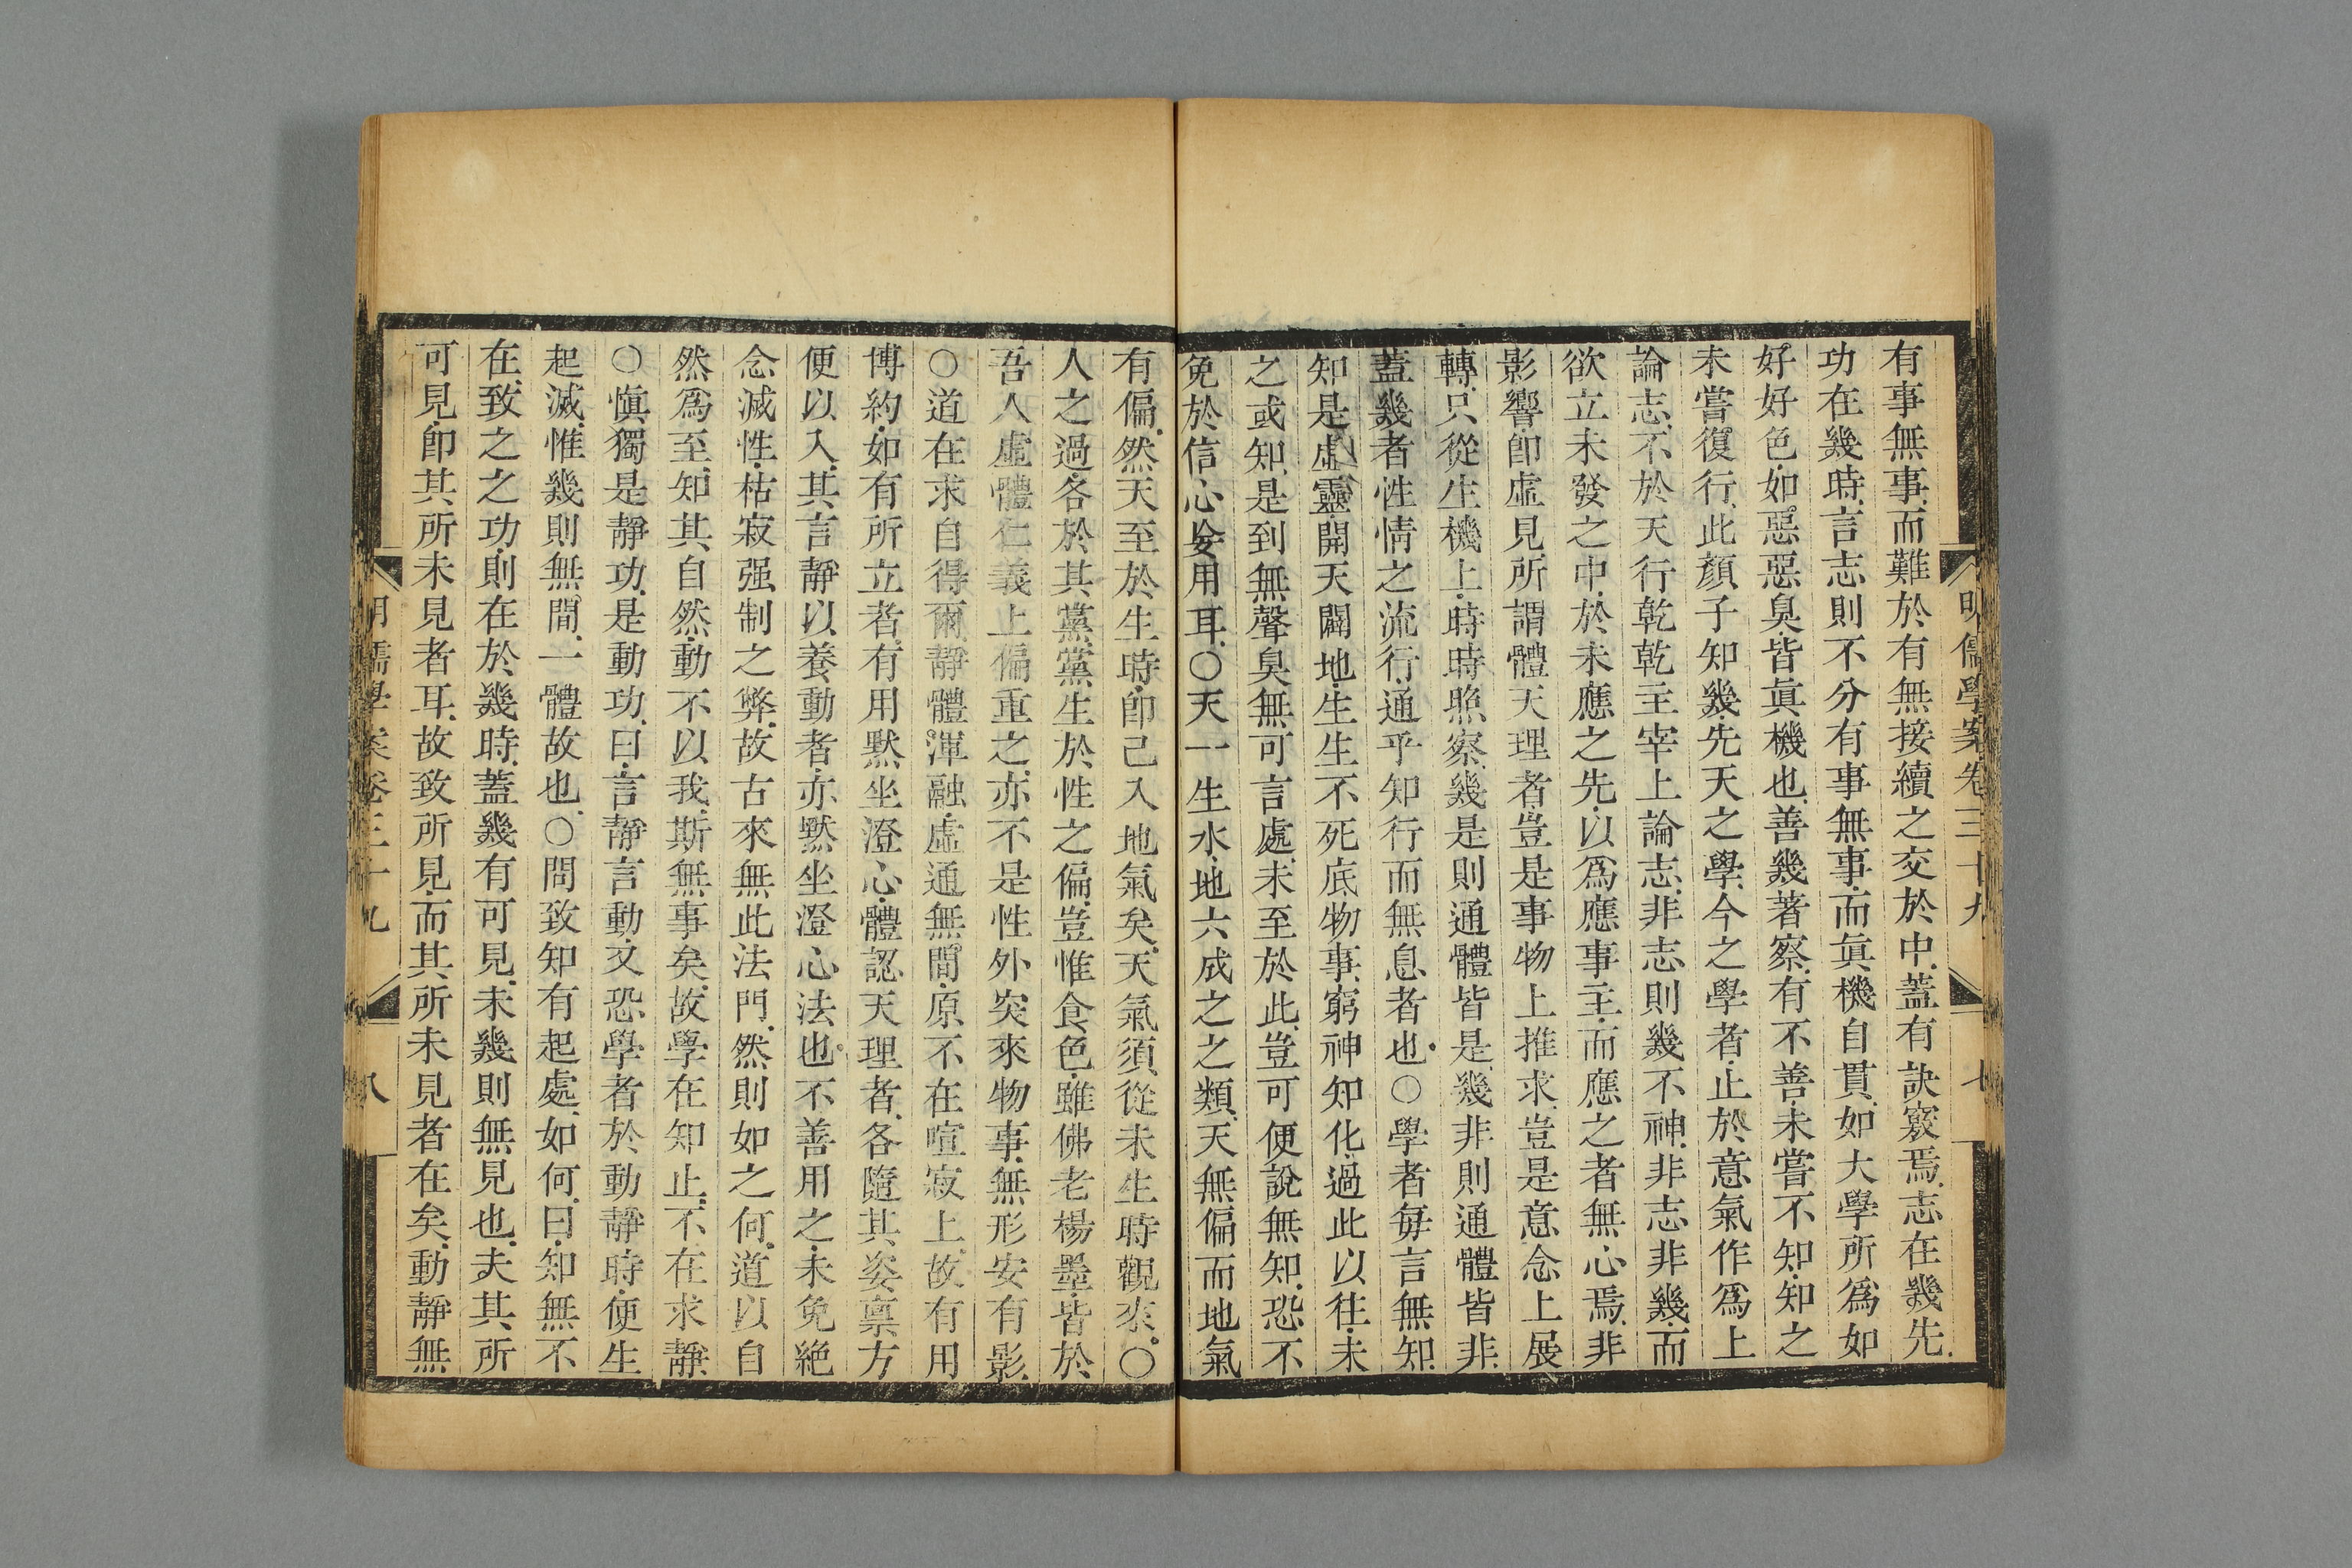 明儒學案卷三十九
七
有事無事.而難於有無接續之交於中.蓋有訣竅焉.志在幾先.
功在幾時.言志則不分有事無事.而眞機自貫.如大學所爲如
好好色.如惡惡臭.皆眞機也.善幾著察.有不善.未嘗不知.知之
未嘗復行.此顏子知幾先天之學.今之學者.止於意氣作爲上
論志.不於天行乾乾主宰上論志.非志則幾不神.非志非幾.而
欲立未發之中.於未應之先.以爲應事主.而應之者無心焉.非
影響.卽虛見.所謂體天理者.豈是事物上推求.豈是意念上展
轉.只從生機上.時時照察.幾是則通體皆是.幾非則通體皆非.
蓋幾者性情之流行.通乎知行而無息者也.○學者每言無知.
知是虛靈.開天闢地.生生不死底物事.窮神知化.過此以往.未
之或知.是到無聲臭無可言處.未至於此.豈可便說無知.恐不
免於信心妄用耳.○天一生水.地六成之之類.天無偏而地氣
有偏.然天至於生時.卽已入地氣矣.天氣須從未生時觀來.○
人之過.各於其黨.黨生於性之偏.豈惟食色.雖佛老楊墨.皆於
吾人虛體仁義上偏重之.亦不是性外突來物事.無形安有影.
○道在求自得爾.靜體渾融.虛通無間.原不在喧寂上.故有用
博約.如有所立者.有用默坐澄心.體認天理者.各隨其姿稟方
便以入.其言靜以養動者.亦默坐澄心法也.不善用之.未免絕
念滅性.枯寂强制之弊.故古來無此法門.然則如之何.道以自
然爲至.知其自然.動不以我.斯無事矣.故學在知止.不在求靜.
○愼獨是靜功.是動功.曰.言靜言動.又恐學者於動靜時.便生
起滅.惟幾則無間.一體故也.○問致知有起處.如何.曰.知無不
在.致之之功.則在於幾時.蓋幾有可見.未幾則無見也.夫其所
可見.卽其所未見者耳.故致所見.而其所未見者在矣.動靜無
明儒學案卷三十九
八